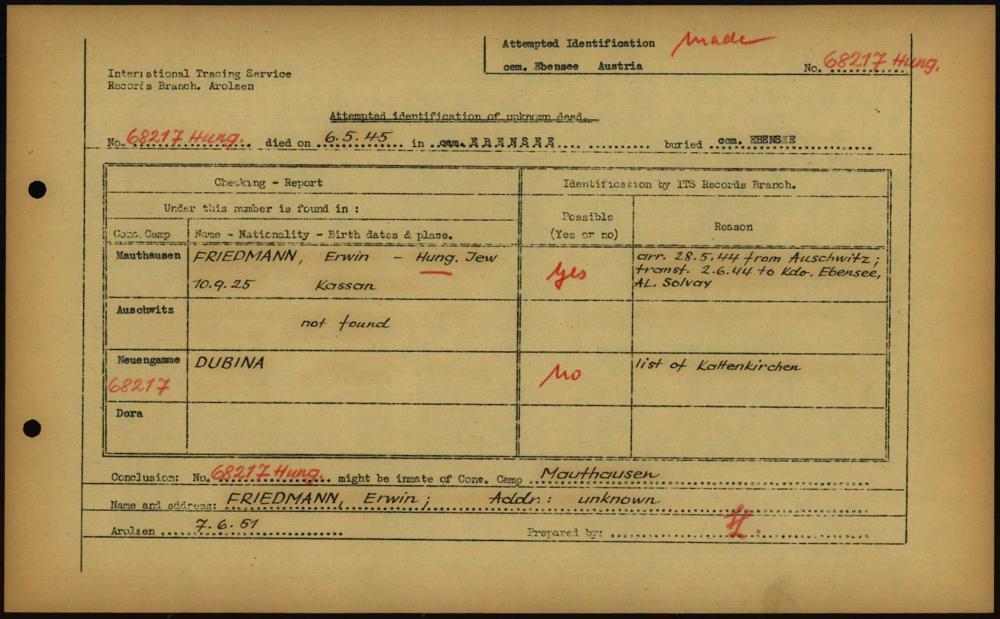 Attempted Identification made
cem. Ebensee Austria No. 68217 Hung.
International Tracing Service
Records Branch. Arolsen
Attempted identification of unknown dead.
No. 68217 Hung. died on 6.5.45 in cem. EBENSEE buried cem. EBENSEE
Checking - Report Identification by ITS Records Branch.
Under this number is found in :
Conc. Camp Name - Nationality - Birth dates & place. Possible (Yes or no) Reason
Mauthausen FRIEDMANN, Erwin - Hung. Jew yes arr. 28.5.44 from Auschwitz;
10.9.25 Kassan transf. 2.6.44 to Kdo. Ebensee,
AL. Solvay
Auschwitz not found
Neuengamme DUBINA No list of Kaltenkirchen
68217
Dora
Conclusion: No. 68217 Hung. might be inmate of Conc. Camp Mauthausen
Name and address: FRIEDMANN, Erwin; Addr.: unknown
Arolsen 7.6.51 Prepared by: